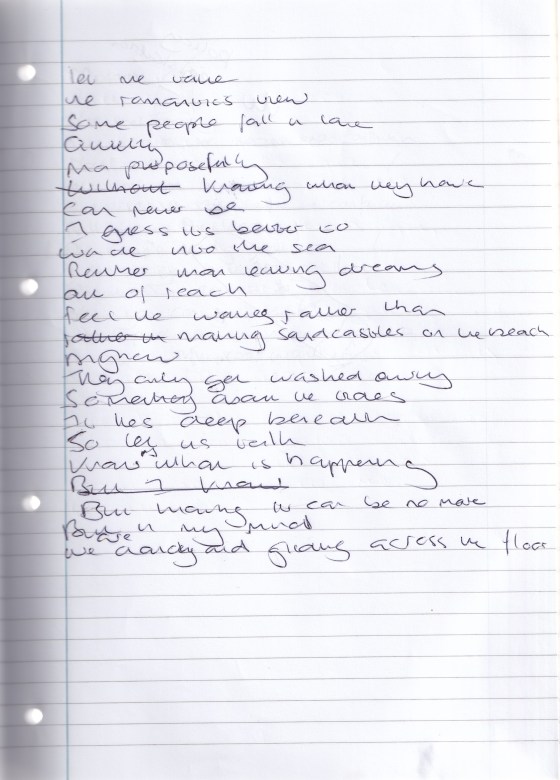 let me value
the romantics view
Some people fall in love
Quietly
purposefully
~~Without~~ Knowing what they have
Can never be
I guess its better to
wade into the sea
Rather than leaving dreams
out of reach
feel the waves rather than
~~rather in~~ making sandcastles on the beach
They only get washed away
Something about the tides
It lies deep beneath
So let us both
Know what is happening
~~But I know~~
But making it can be no more
in my mind
we are already gliding across the floor